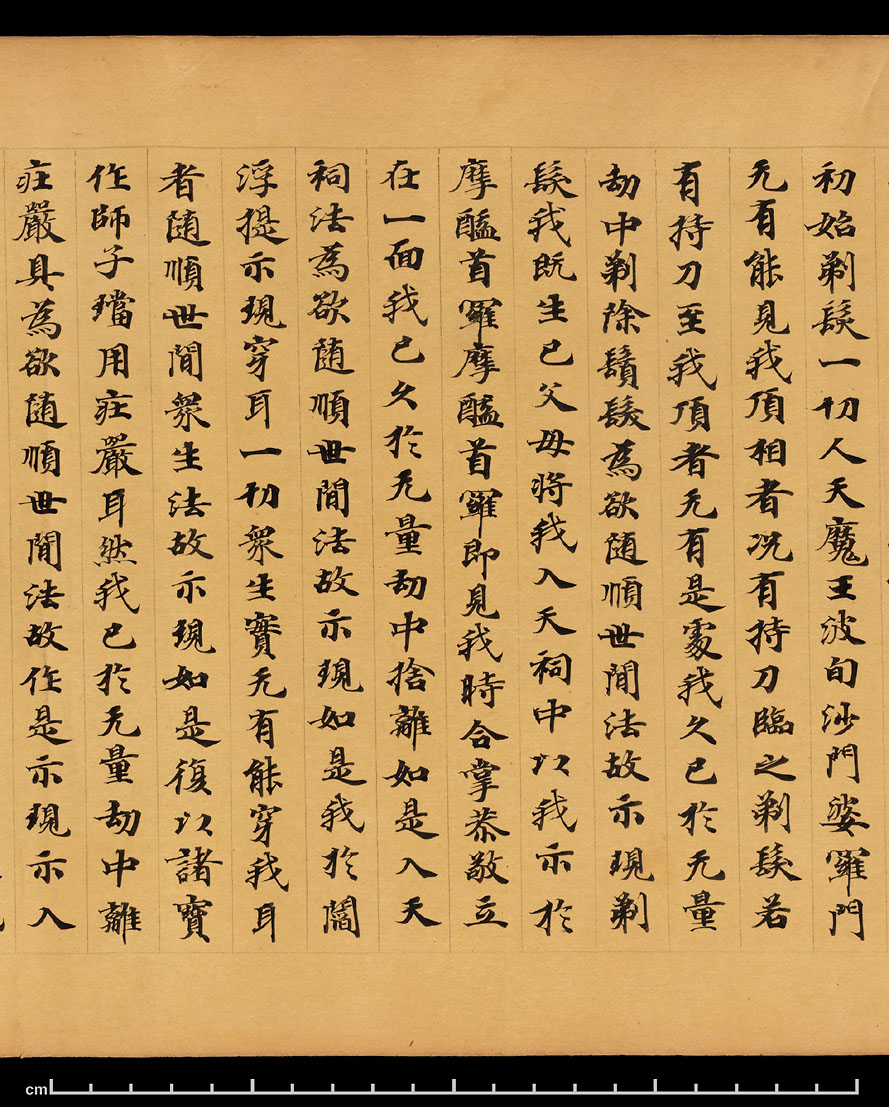 初始剃髮一切人天魔王波旬沙門婆羅門
无有能見我頂相者況有持刀臨之剃髮若
有持刀至我頂者无有是處我久已於无量
劫中剃除鬚髮為欲随順世間法故示現剃
髮我既生已父母将我入天祠中以我示於
摩醯首羅摩醯首羅即見我時合掌恭敬立
在一面我已久於无量劫中捨離如是入天
祠法為欲随順世間法故示現如是我於閻
浮提示現穿耳一切衆生實无有能穿我耳
者随順世間衆生法故示現如是復以諸寶
作師子璫用庄嚴耳然我已於无量劫中離
庄嚴具為欲随順世間法故作是示現示入
cm